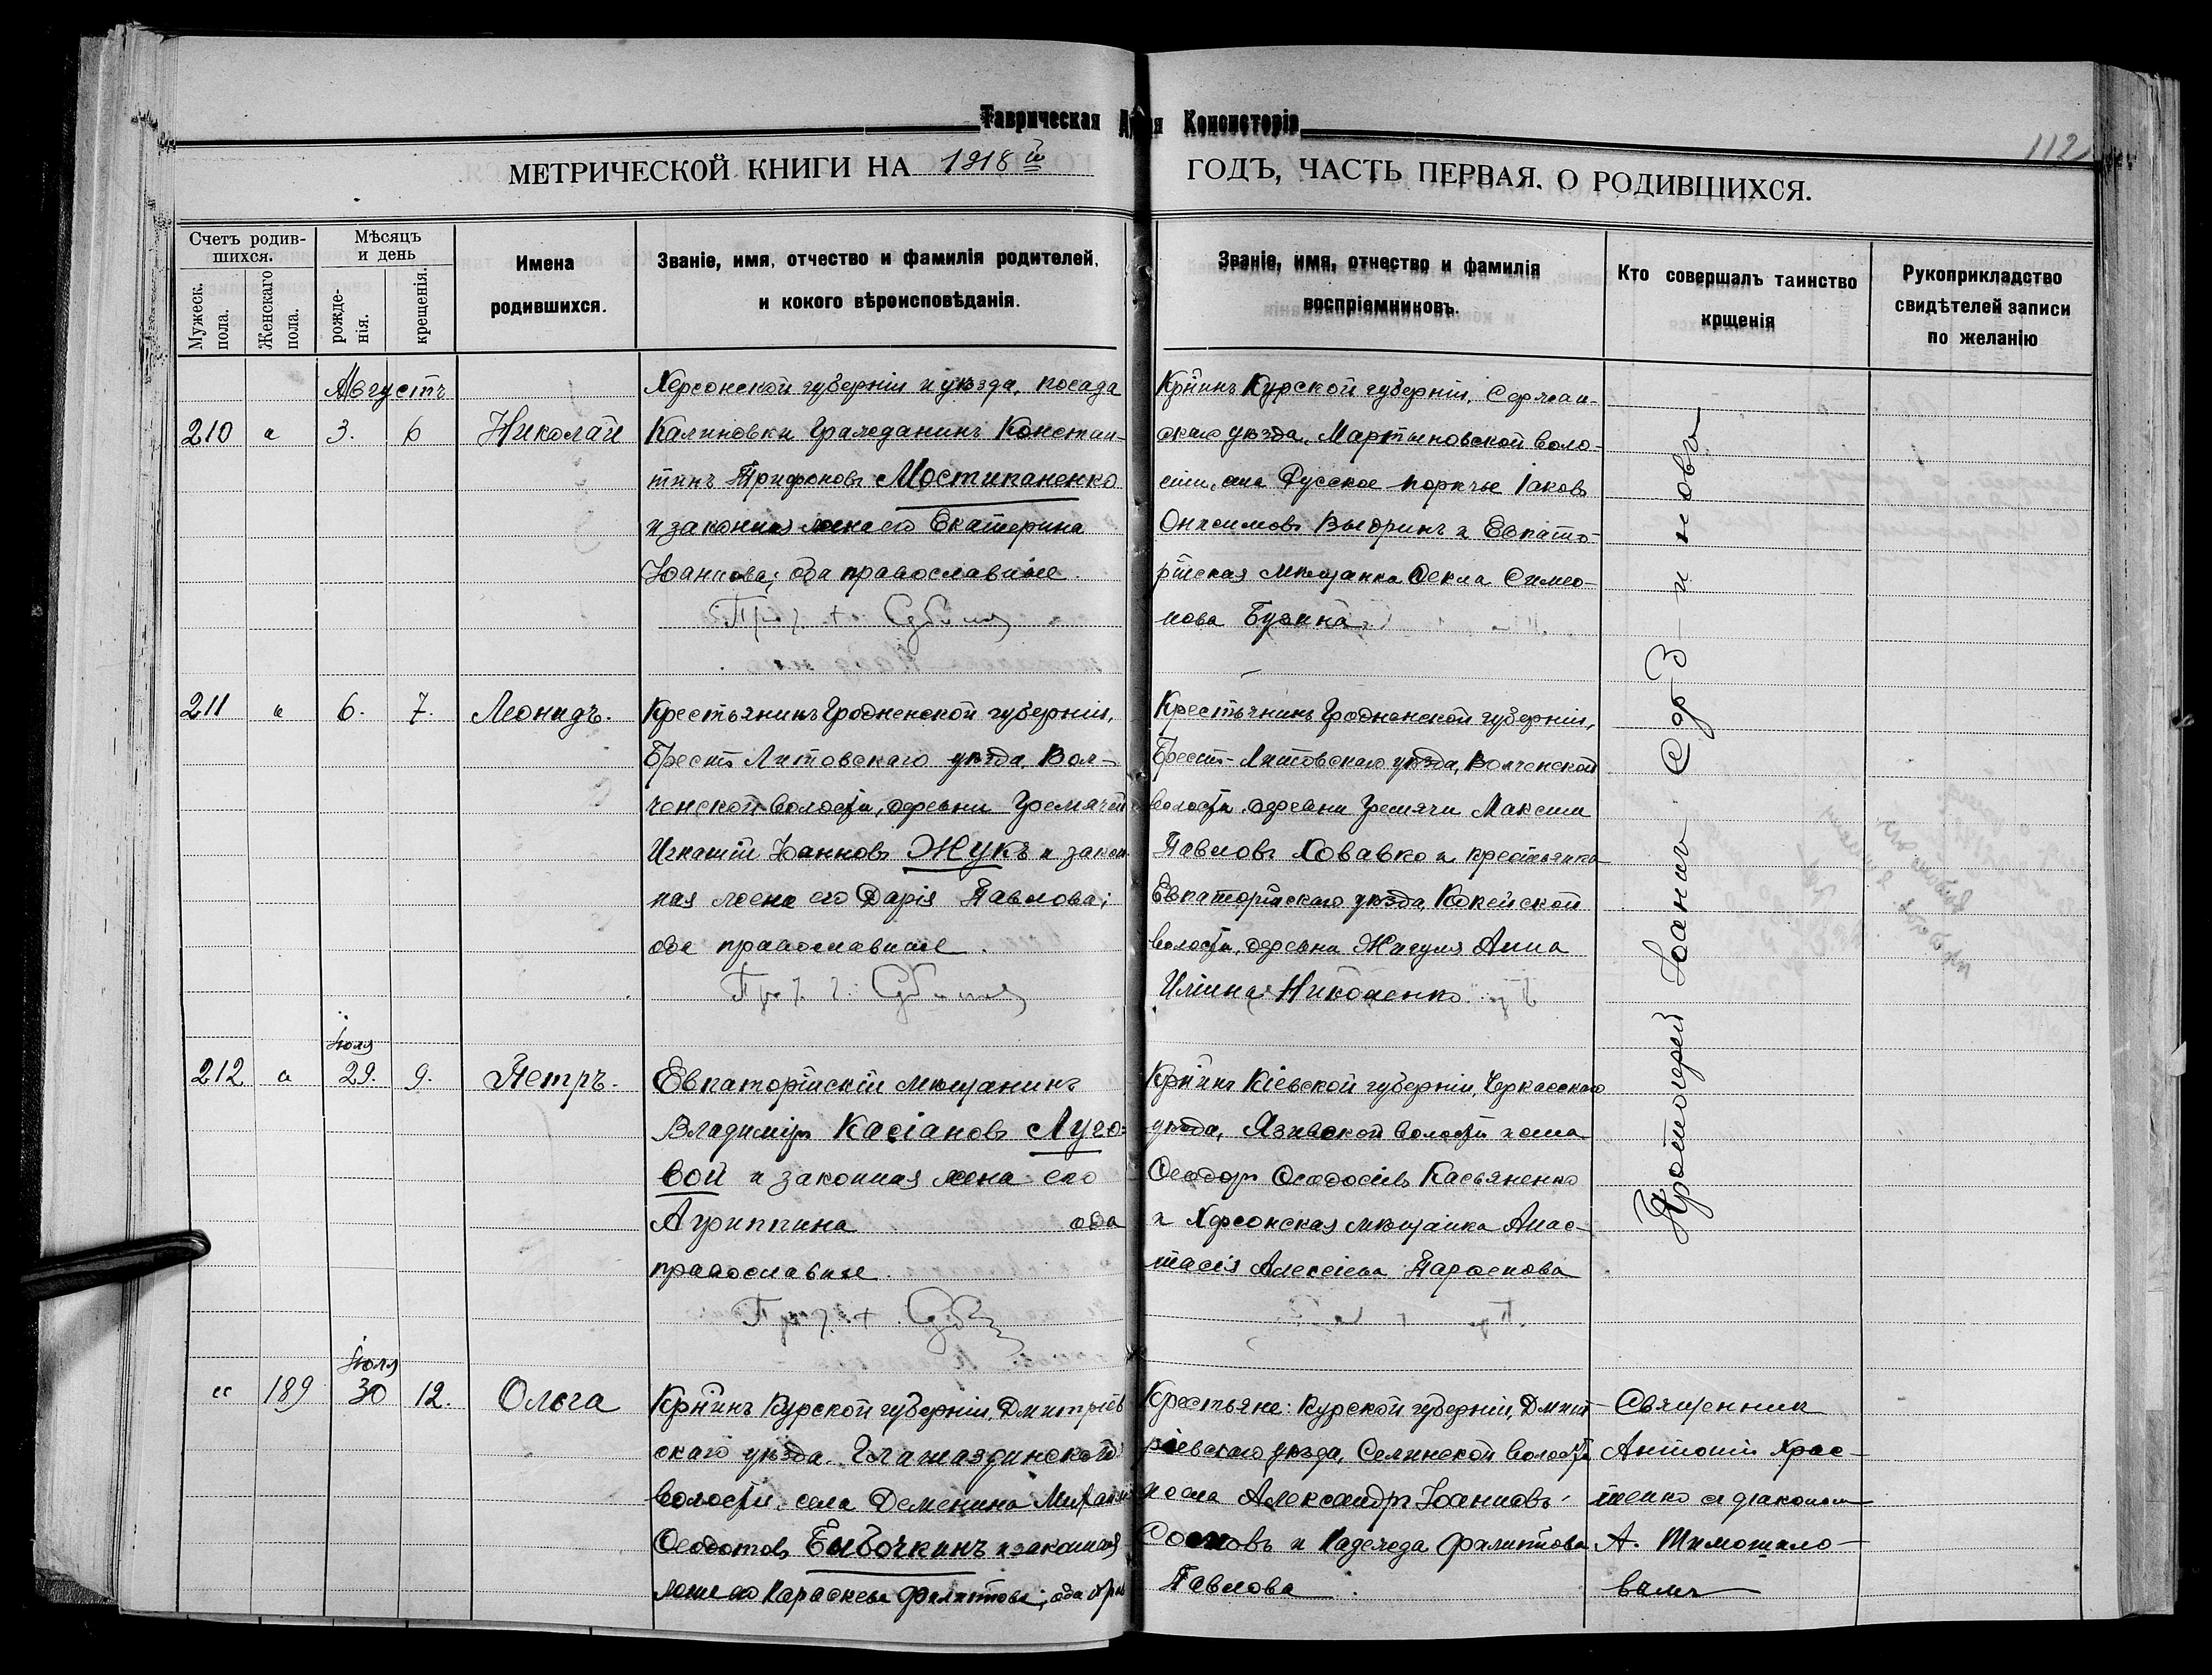 Таврическая Консисторія
112
МЕТРИЧЕСКОЙ КНИГИ НА 1918й ГОДЪ, ЧАСТЬ ПЕРВАЯ, О РОДИВШИХСЯ.
Счетъ родив-
шихся.
Мужеск.
пола.
Женскаго
пола.
Мѣсяцъ
и день
рожде-
нія.
крещенія.
Имена
родившихся.
Званіе, имя, отчество и фамилія родителей,
и кокого вѣроисповѣданія.
Званіе, имя, отчество и фамилія
воспріемниковъ.
Кто совершалъ таинство
крщенія
Рукоприкладство
свидѣтелей записи
по желанію
Августъ
210 3. 6 Николай
Херсонской губерніи и уѣзда, посада
Калиновки гражданинъ Констан-
тинъ Трифоновъ Мостипаненко
и законная жена его Екатерина
Іоаннова; оба православные.
Крн̃инъ Курской губерніи,
скаго уѣзда, Мартыновской воло-
сти, села Русское поречье Іаковъ
Онисимовъ и Евпато-
рійская мѣщанка Ѳекла Симео-
нова Бузина.
211 6. 7. Леонидъ.
Крестьянинъ Гродненской губерніи,
Брестъ Литовскаго уѣзда, Вол-
ченской волости, деревни Гремячей
Игнатій Іоанновъ Жукъ и закон-
ная жена его Дарія Павлова;
оба православные.
Крестьянинъ Гродненской губерніи,
Брестъ-Литовскаго уѣзда, Волченской
волости, деревни Гремячи Максим
Павловъ Ховавко и крестьянка
Евпаторійскаго уѣзда, Коке́йской
волости, деревни Жигуля Анна
Иліина Николаенко.
Іюля
212 29. 9. Петръ.
Евпаторійскій мѣщанинъ
Владиміръ Касіановъ Луго-
вой и законная жена его
Агриппина оба
православные.
Крн̃инъ Кіевской губерніи, Черкасскаго
уѣзда, Язивской волости и села
Ѳеодоръ Ѳеодосіевъ Касьяненко
и Херсонская мѣщанка Анас-
тасія Алексіева Параскова
Протоіерей Іоаннъ Сербиновъ
Іюля
189 30 12. Ольга
Крн̃инъ Курской губерніи, Дмитріев
скаго уѣзда,
волости, села Деменина Михаилъ
Ѳеодотовъ Быбочкинъ и законная
жена его Параскева Филиппова; оба прав
Крестьяне: Курской губерніи, Дмит-
ріевскаго уѣзда, Селинской волости
и села Александръ Іоанновъ
Сомовъ и Надежда Филиппова
Павлова.
Священник
Антоній Храс-
тенко съ діакономъ
А. Тимошило-
вымъ